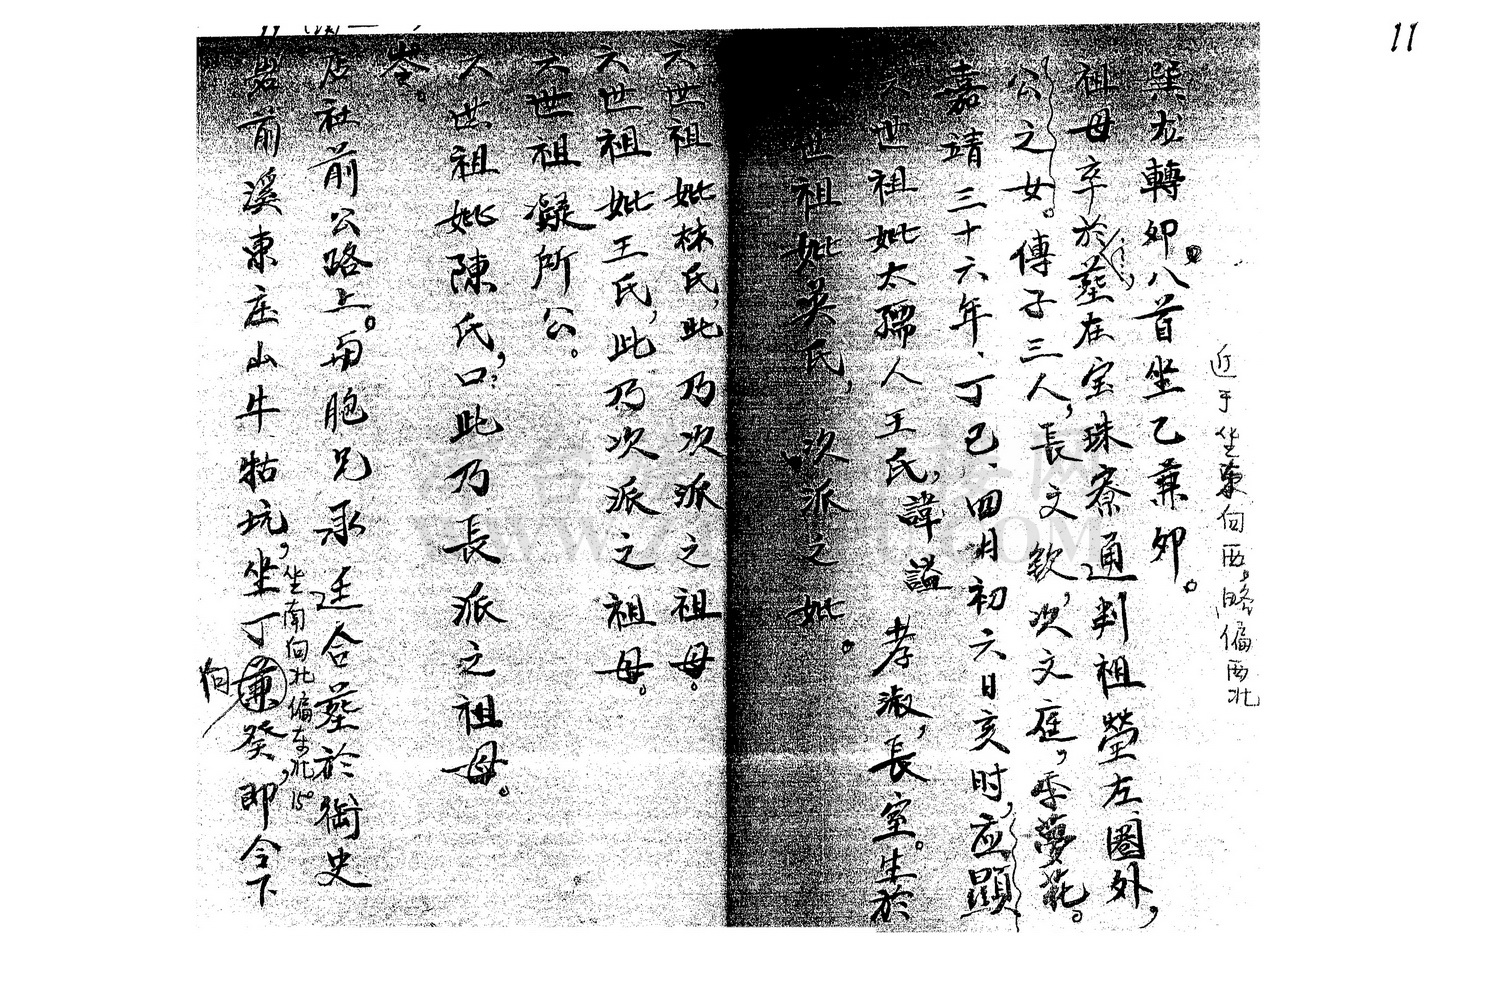 11
近于坐東向西,略偏西北
巽龙轉卯八首坐乙兼卯。
祖母卒於,墓在宝珠寮通判祖塋左圈外,
公之女。傳子三人,長文欽,次文庭,季夢花。
嘉靖三十六年、丁巳、四月初六日亥时,应顯
六世祖妣太孺人王氏,諱 謚 孝淑,長室。生於
世祖妣吳氏,次派之妣。
六世祖妣林氏,此乃次派之祖母。
六世祖妣王氏,此乃次派之祖母。
六世祖凝所公。
八世祖妣陳氏,口:此乃長派之祖母。
岺。
店社前公路上。男胞兄承廷合墓於御史
坐南向北偏东北15°
岩前溪東庄山牛牯坑,坐丁兼癸,即今下
向